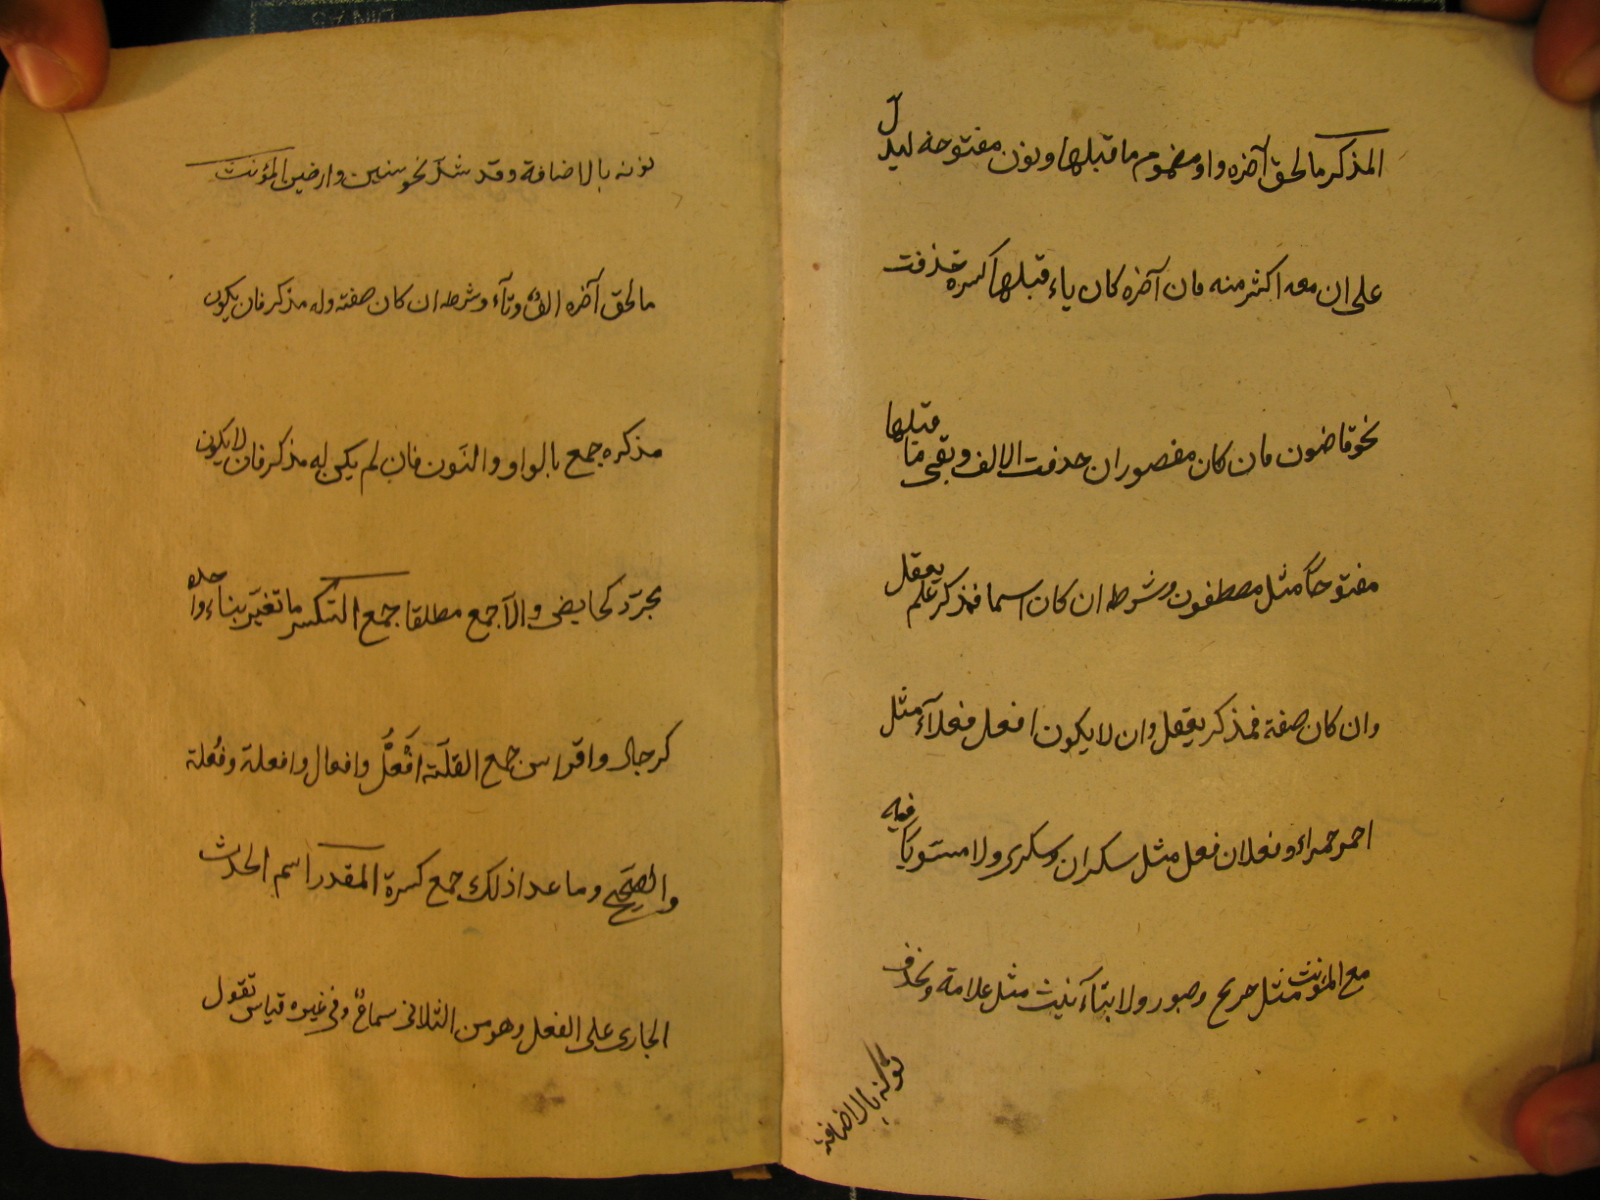 المذكر مالحق آخره واو مضموم ما قبلها ونون مفتوحه ليدل
على ان معه اكثر منه فان آخره كان ياء قبلها كسرة حذفت
نحو قاضون فان كان مقصورا حذفت الالف وبقى ما قبلها
مفتوحا مثل مصطفون وشرطه ان كان اسما فمذكر علم يعقل
وان كان صفة فمذكر يعقل وان لا يكون افعل فعلآء مثل
احمر حمراء وفعلان فعلى مثل سكران وسكرى ولا مستويا فيه
مع المؤنث مثل جريح وصبور ولا بتآء تانيث مثل علامة وتحذف
نونه بالاضافة
نونه بالاضافة وقد شذ نحو سنين وارضين المؤنث
مالحق آخره الف وتآء وشرطه ان كان صفته وله مذكر فان يكون
مذكره جمع بالواو والنون فان لم يكن له مذكر فان لا يكون
مجرّد كحايض والآ جمع مطلقا جمع التكسر ما تغيّر بناء واحده
كرجال وافراس جمع القلّة افْعُل وافعال وافعلة وفعلة
والصحيح وما عدا ذلك جمع كسرة المقدر اسم الحدث
الجارى على الفعل وهو من الثلاثى سماع وفى غيره قياس تقول